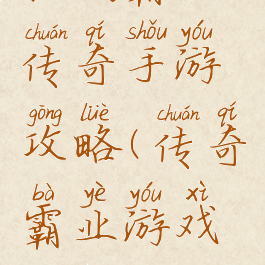 chuán qí shǒu yóu
传奇手游
gōng lüè ( chuán qí
攻略(传奇
bà yè yóu xì
霸业游戏